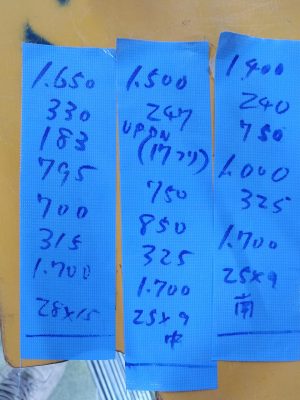 1.650
330
183
795
700
315
1.700
28×15
1.500
247
UPDN
(17フリ)
750
850
325
1.700
25×9
中
1.400
240
750
1.000
325
1.700
25×9
南